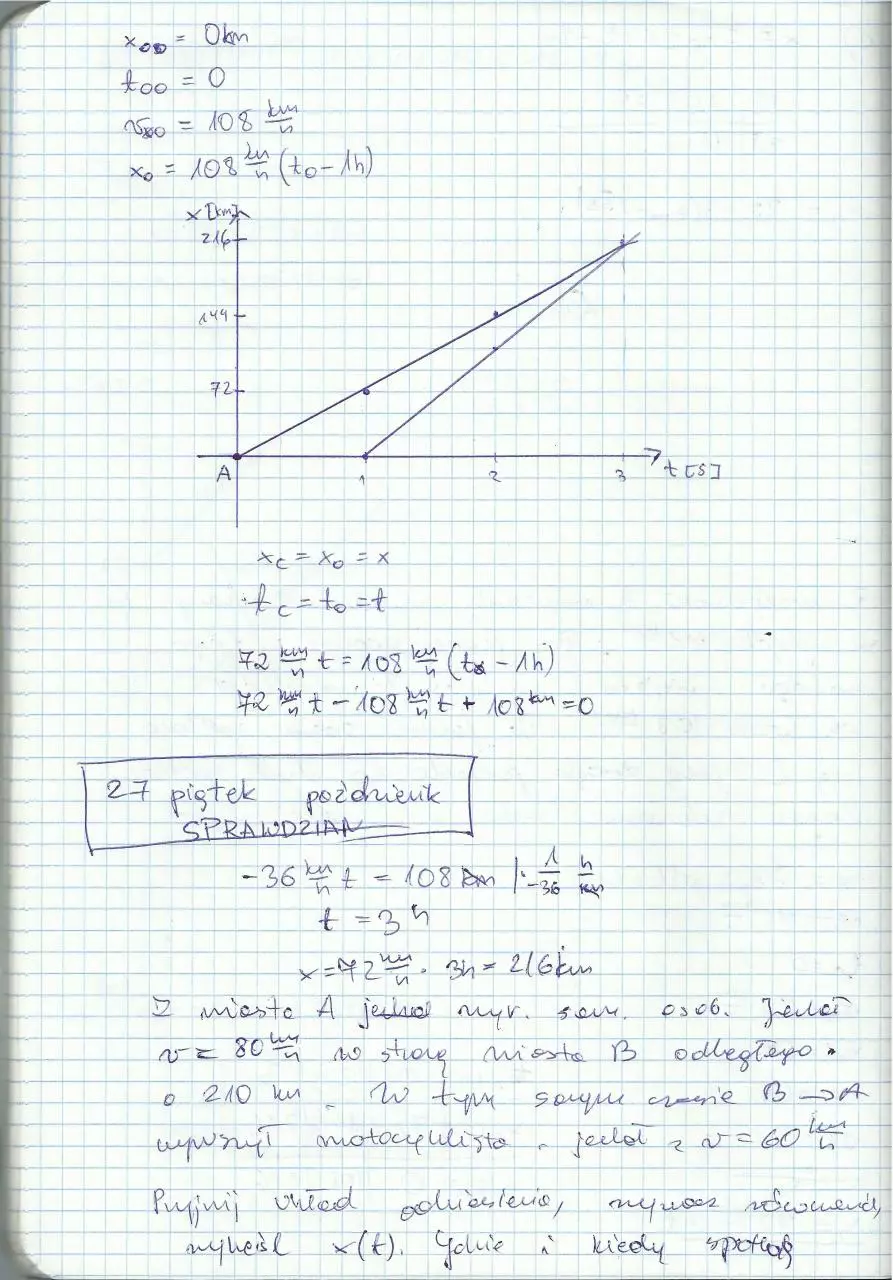 x₀₀ = 0km
t₀₀ = 0
v₀₀ = 108 km/h
x₀ = 108 km/h (t₀ - 1h)
x [km]
216
144
72
A 1 2 3 t [s]
x_c = x₀ = x
t_c = t₀ = t
72 km/h t = 108 km/h (t - 1h)
72 km/h t - 108 km/h t + 108 km = 0
27 piątek październik
SPRAWDZIAN
-36 km/h t = 108 km |· 1/-36 h/km
t = 3 h
x = 72 km/h · 3h = 216km
Z miasta A wyr. sam. osob. Jechał
v = 80 km/h w stronę miasta B odległego
o 210 km. W tym samym czasie B → A
wyruszył motocyklista jechał z v = 60 km/h
Przyjmij układ odniesienia, wyznacz równania,
wykreśl x(t). Gdzie i kiedy spotkają